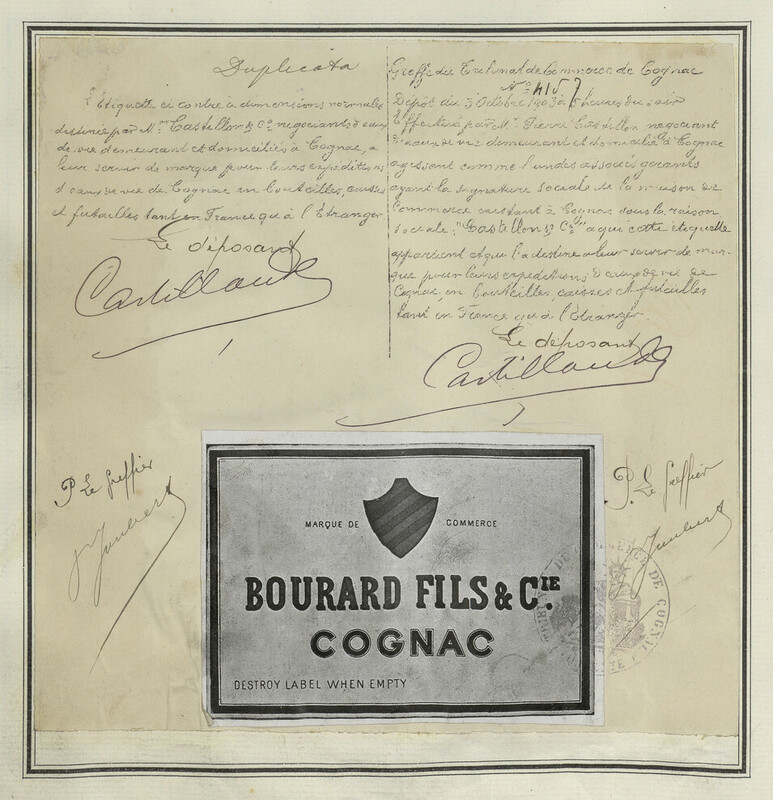 Duplicata
L'Etiquette ci contre à dimensions normales
destinée par Mrs Castillon & Co négociants d'eaux
de vie demeurant et domiciliés à Cognac, a
leur servir de marque pour leurs expéditions
d'eaux de vie de Cognac en bouteilles, caisses
et futailles tant en France qu'à l'Etranger
Le déposant
Greffe du Tribunal de Commerce de Cognac
No 415
Dépôt du 3 Octobre 1903 à heures du soir
Effectué par Mr Pierre Castillon négociant
d'eaux de vie demeurant et domicilié à Cognac
agissant comme l'un des associés gérants
ayant la signature sociale de la maison de
Commerce existant à Cognac sous la raison
sociale "Castillon & Co" a qui cette étiquette
appartient et qui l'a destine a leur servir de mar-
que pour leurs expéditions d'eaux de vie de
Cognac, en bouteilles, caisses et futailles
tant en France qu'à l'Etranger.
Le déposant
P. Le Greffier
Joubert
P. Le Greffier
Joubert
MARQUE DE COMMERCE
BOURARD FILS & CIE.
COGNAC
DESTROY LABEL WHEN EMPTY
TRIBUNAL DE COMMERCE DE COGNAC